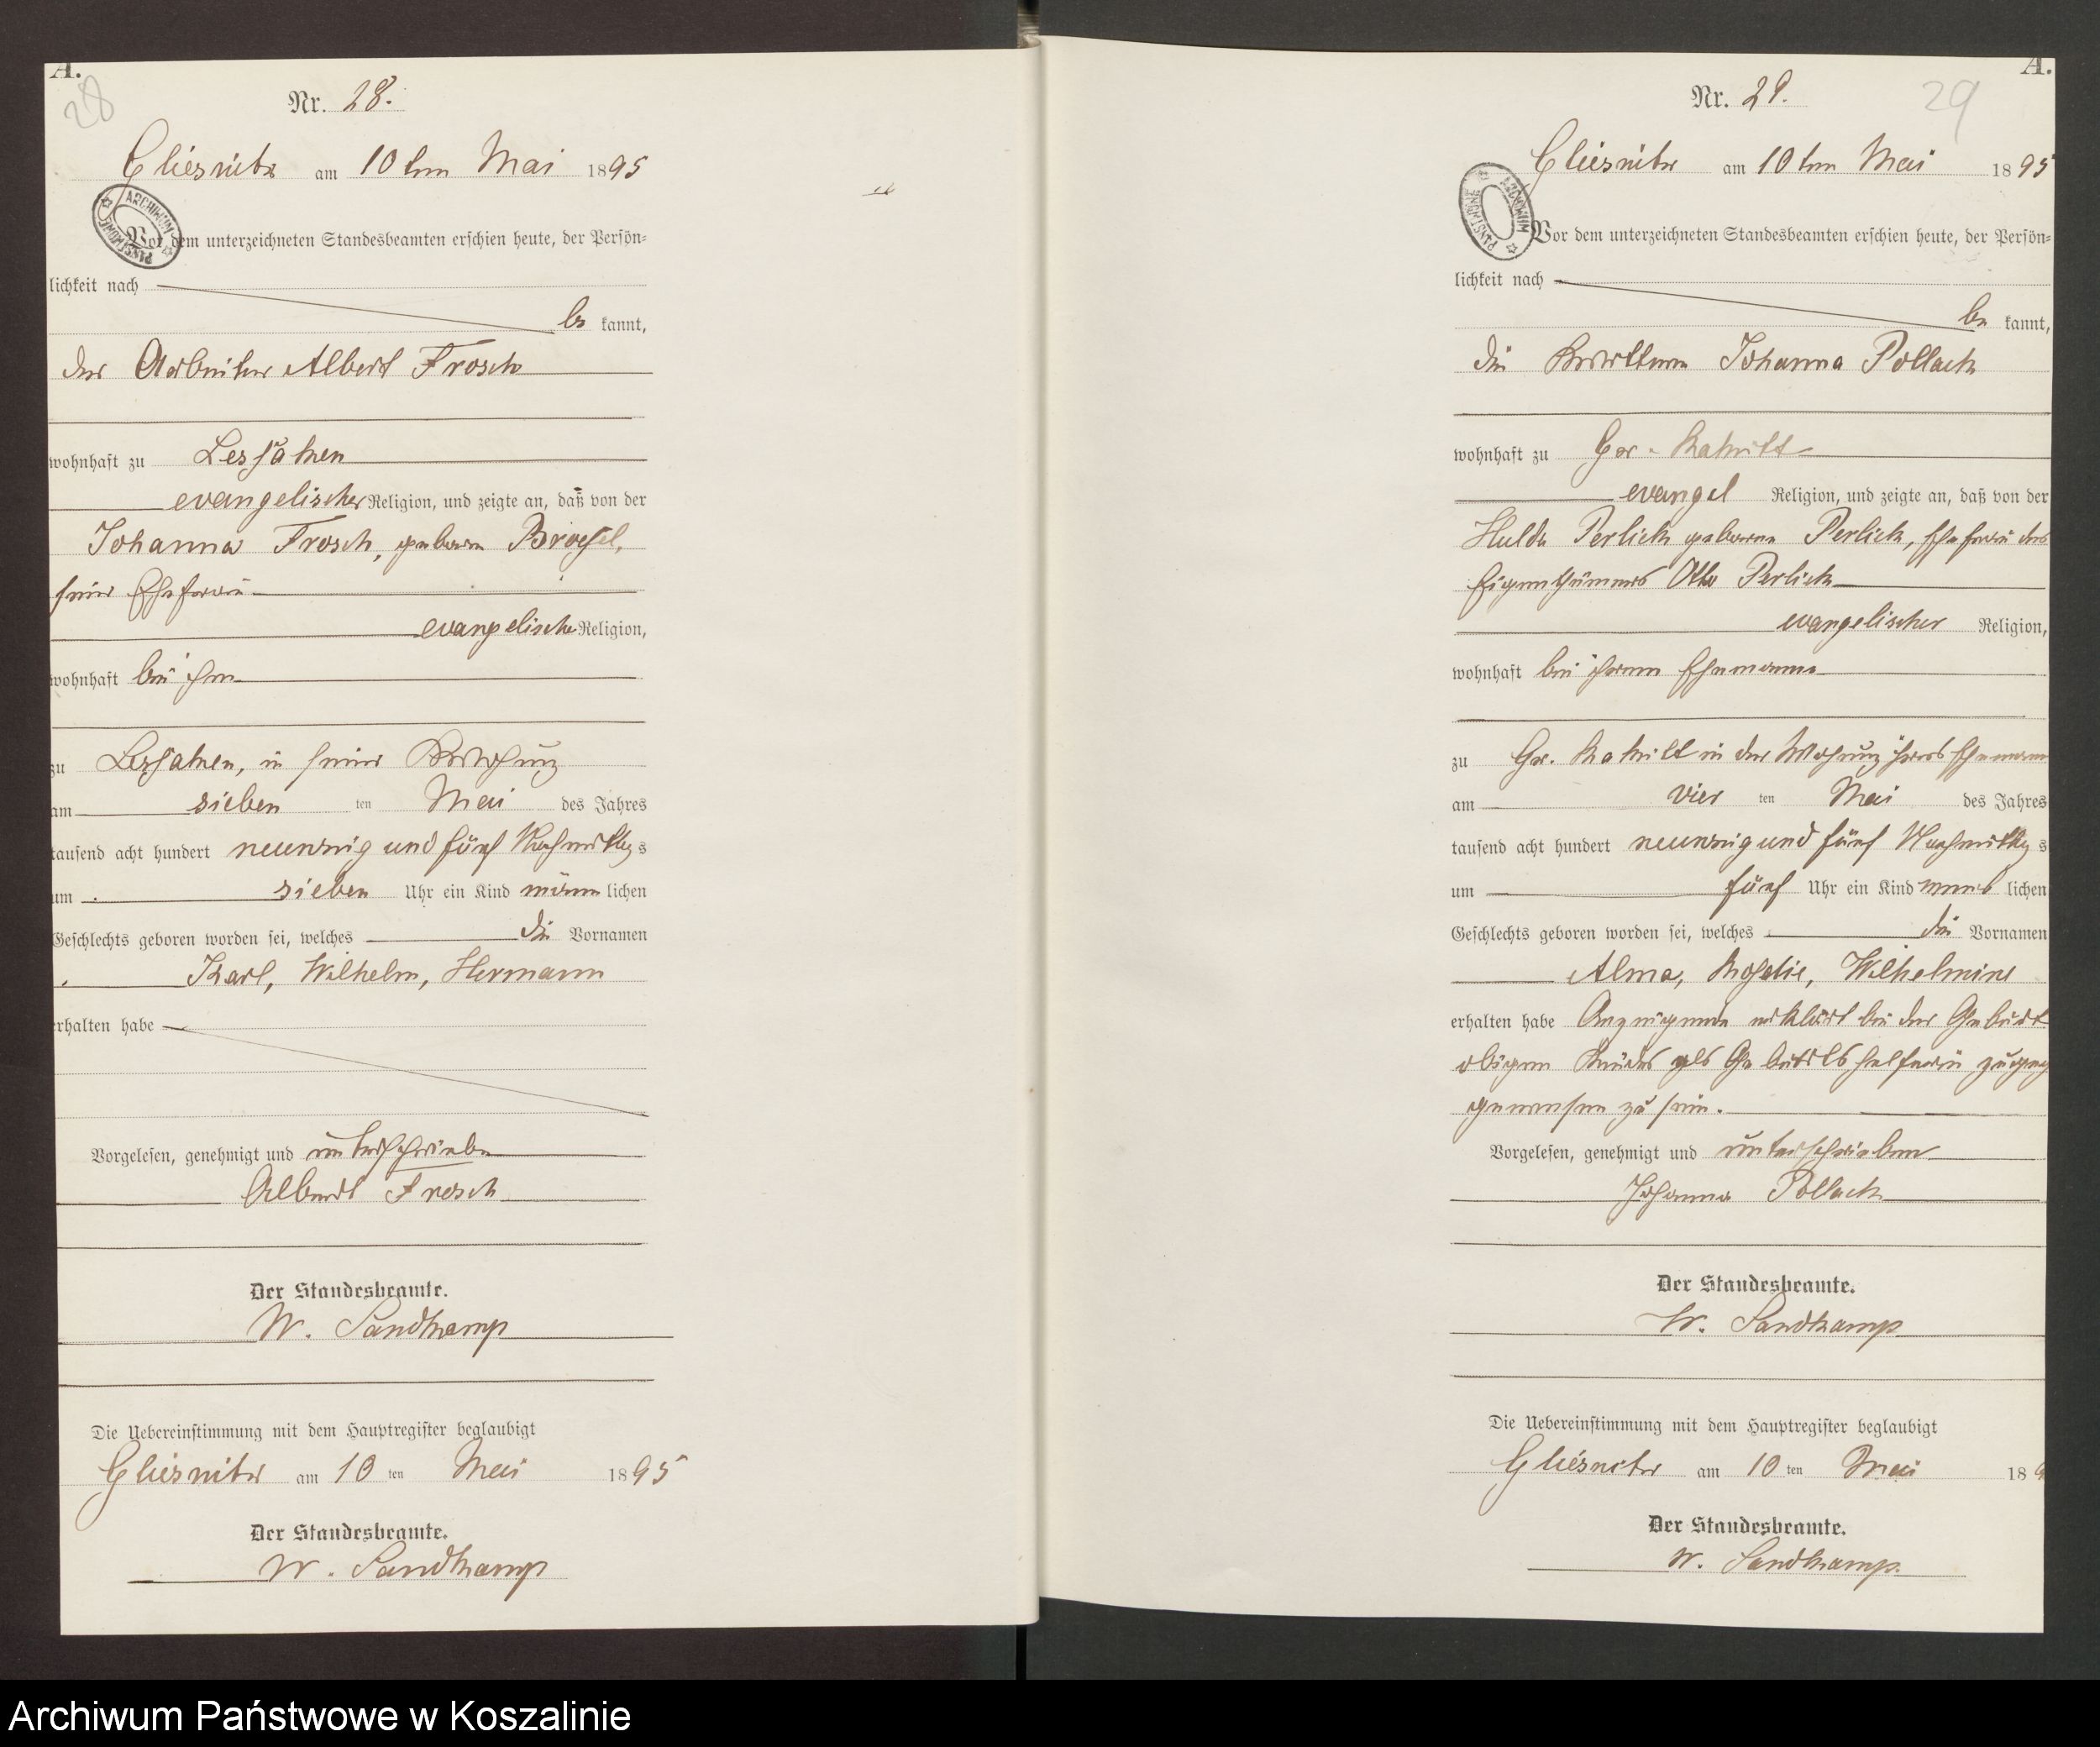 A.
28
Nr. 28.
Gliesnitz am 10 ten Mai 1895
ARCHIWUM PAŃSTWOWE
Vor dem unterzeichneten Standesbeamten erschien heute, der Persön=
lichkeit nach
be kannt,
der Arbeiter Albert Frosch
wohnhaft zu
evangelischer Religion, und zeigte an, daß von der
Johanna Frosch, geborne
seiner Ehefrau
evangelische Religion,
wohnhaft bei ihm
zu in seiner
am sieben ten Mai des Jahres
tausend acht hundert neunzig und fünf Nachmittag s
um sieben Uhr ein Kind männ lichen
Geschlechts geboren worden sei, welches die Vornamen
Karl, Wilhelm, Hermann
erhalten habe
Vorgelesen, genehmigt und unterschrieben
Albert Frosch
Der Standesbeamte.
W. Sandkamp
Die Uebereinstimmung mit dem Hauptregister beglaubigt
Gliesnitz am 10 ten Mai 1895
Der Standesbeamte.
W. Sandkamp
A.
29
Nr. 29.
Gliesnitz am 10 ten Mai 1895
ARCHIWUM PAŃSTWOWE
Vor dem unterzeichneten Standesbeamten erschien heute, der Persön=
lichkeit nach
be kannt,
die Johanna Pollack
wohnhaft zu Gr.
evangel Religion, und zeigte an, daß von der
Hulda Perlick geborne Perlick, Ehefrau des
Eigenthümers Otto Perlick
evangelischer Religion,
wohnhaft bei ihrem Ehemanne
zu Gr. in der Wohnung ihres Ehemann
am vier ten Mai des Jahres
tausend acht hundert neunzig und fünf Nachmittag s
um fünf Uhr ein Kind weib lichen
Geschlechts geboren worden sei, welches die Vornamen
Alma, Rosalie, Wilhelmine
erhalten habe Anzeigende erklärt bei der Geburt
obigen Kindes als Geburtshelferin zugeg
gewesen zu sein.
Vorgelesen, genehmigt und unterschrieben
Johanna Pollack
Der Standesbeamte.
W. Sandkamp
Die Uebereinstimmung mit dem Hauptregister beglaubigt
Gliesnitz am 10 ten Mai 189
Der Standesbeamte.
W. Sandkamp.
Archiwum Państwowe w Koszalinie